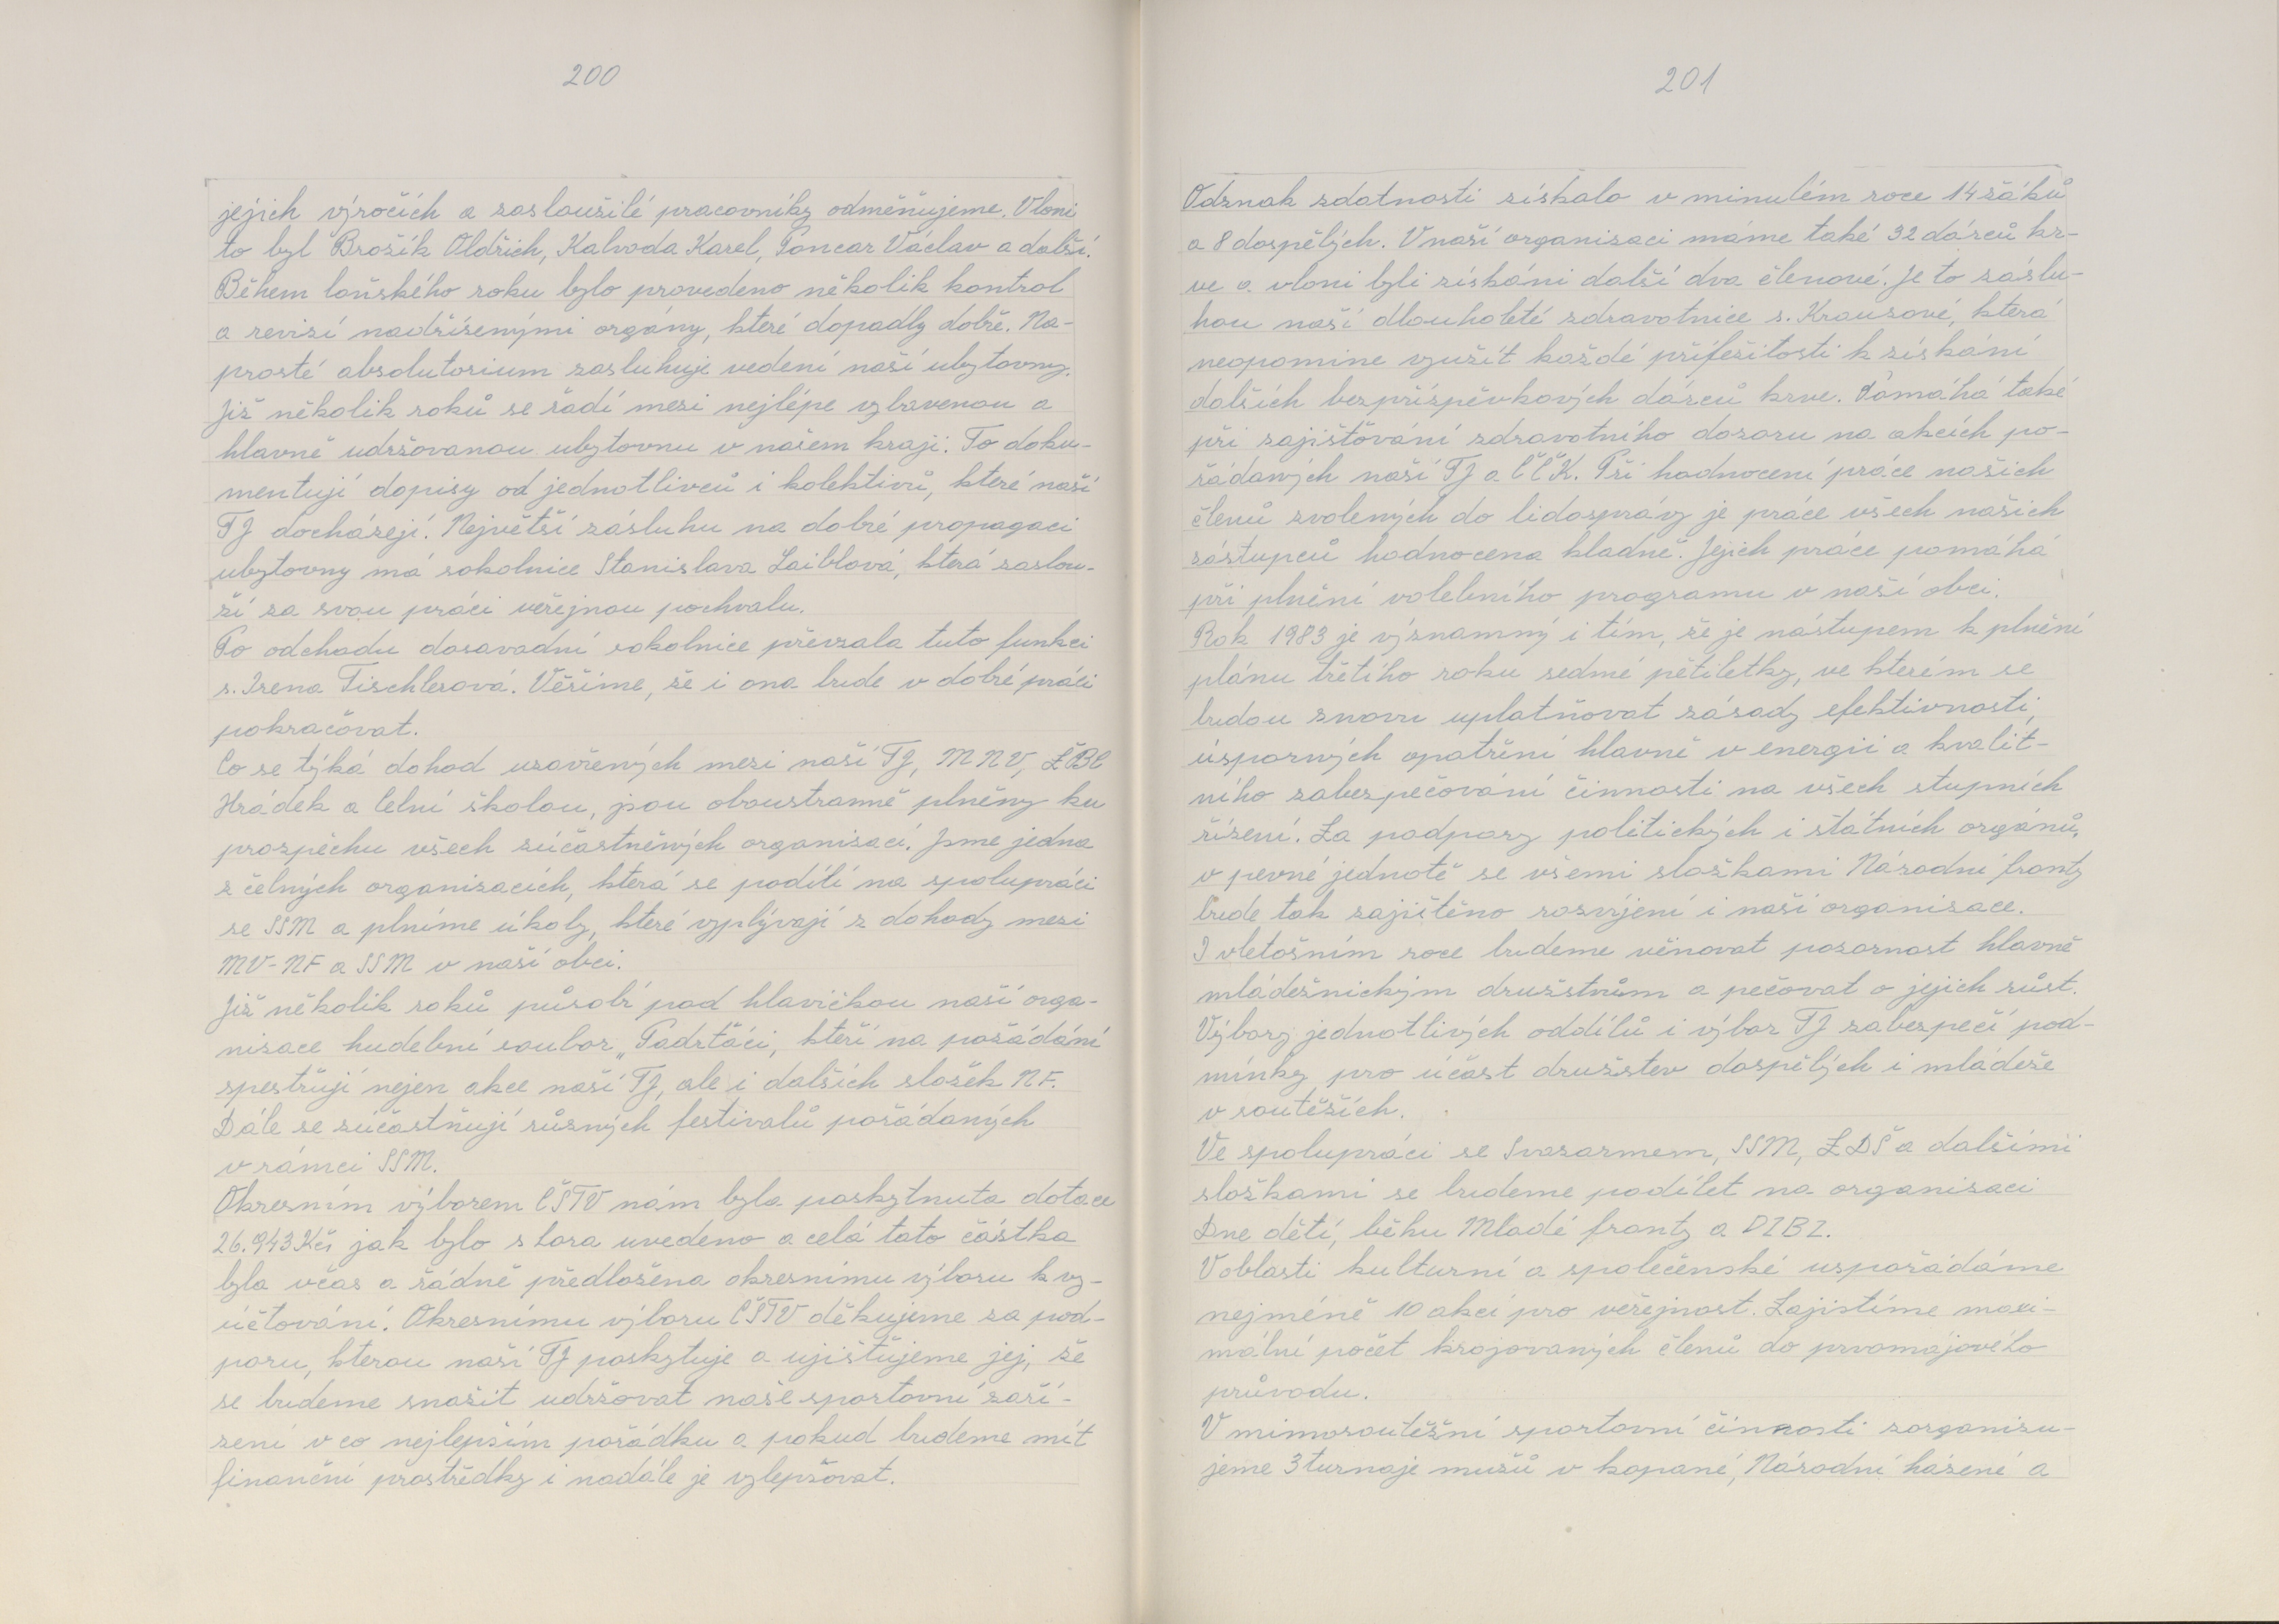 200
jejich výročích a zasloužilé pracovníky odměňujeme. Vloni
to byl Brožík Oldřich, Kalvoda Karel, Poncar Václav a další.
Během loňského roku bylo provedeno několik kontrol
a revizí nadřízenými orgány, které dopadly dobře. Na-
prosté absolutorium zasluhuje vedení naší ubytovny.
Již několik roků se řadí mezi nejlépe vybavenou a
hlavně udržovanou ubytovnu v našem kraji. To doku-
mentují dopisy od jednotlivců i kolektivů, které naší
TJ docházejí. Největší zásluhu na dobré propagaci
ubytovny má sokolnice Stanislava Laiblová, která zaslou-
ží za svou práci veřejnou pochvalu.
Po odchodu dosavadní sokolnice převzala tuto funkci
s. Irena Tischlerová. Věříme, že i ona bude v dobré práci
pokračovat.
Co se týká dohod uzavřených mezi naší TJ, MNV, ZŠBC
Hrádek a Celní školou, jsou oboustranně plněny ku
prospěchu všech zúčastněných organisací. Jsme jedna
z čelných organisacích, která se podílí na spolupráci
se SSM a plníme úkoly, které vyplývají z dohody mezi
MV-NF a SSM v naší obci.
Již několik roků působí pod hlavičkou naší orga-
nisace hudební soubor „Padrťáci, kteří na požádání
zpestřují nejen akce naší TJ, ale i dalších složek NF.
Dále se zúčastňují různých festivalů pořádaných
v rámci SSM.
Okresním výborem ČSTV nám byla poskytnuta dotace
26.943 Kčs jak bylo shora uvedeno a celá tato částka
byla včas a řádně předložena okresnímu výboru k vy-
účtování. Okresnímu výboru ČSTV děkujeme za pod-
poru, kterou naší TJ poskytuje a ujišťujeme jej, že
se budeme snažit udržovat naše sportovní zaří-
zení v co nejlepším pořádku a pokud budeme mít
finanční prostředky i nadále je vylepšovat.
201
Odznak zdatnosti získalo v minulém roce 14 žáků
a 8 dospělých. V naší organisaci máme také 32 dárců kr-
ve a vloni byli získáni další dva členové. Je to záslu-
hou naší dlouholeté zdravotnice s. Krausové, která
neopomine využít každé příležitosti k získání
dalších bezpříspěvkových dárců krve. Pomáhá také
při zajišťování zdravotního dozoru na akcích po-
řádaných naší TJ a ČČK. Při hodnocení práce našich
členů zvolených do lidosprávy je práce všech našich
zástupců hodnocena kladně. Jejich práce pomáhá
při plnění volebního programu v naší obci.
Rok 1983 je významný i tím, že je nástupem k plnění
plánu třetího roku sedmé pětiletky, ve kterém se
budou znovu uplatňovat zásady efektivnosti,
úsporných opatření hlavně v energii a kvalit-
ního zabezpečování činnosti na všech stupních
řízení. Za podpory politických i státních orgánů,
v pevné jednotě se všemi složkami Národní fronty
bude tak zajištěno rozvíjení i naší organisace.
I vletošním roce budeme věnovat pozornost hlavně
mládežnickým družstvům a pečovat o jejich růst.
Výbory jednotlivých oddílů i výbor TJ zabezpečí pod-
mínky pro účast družstev dospělých i mládeže
v soutěžích.
Ve spolupráci se Svazarmem, SSM, ZDŠ a dalšími
složkami se budeme podílet na organisaci
Dne dětí, běhu Mladé fronty a DZBZ.
V oblasti kulturní a společenské uspořádáme
nejméně 10 akcí pro veřejnost. Zajistíme maxi-
mální počet krojovaných členů do prvomájového
průvodu.
V mimosoutěžní sportovní činnosti zorganizu-
jeme 3 turnaje mužů v kopané, Národní házené a